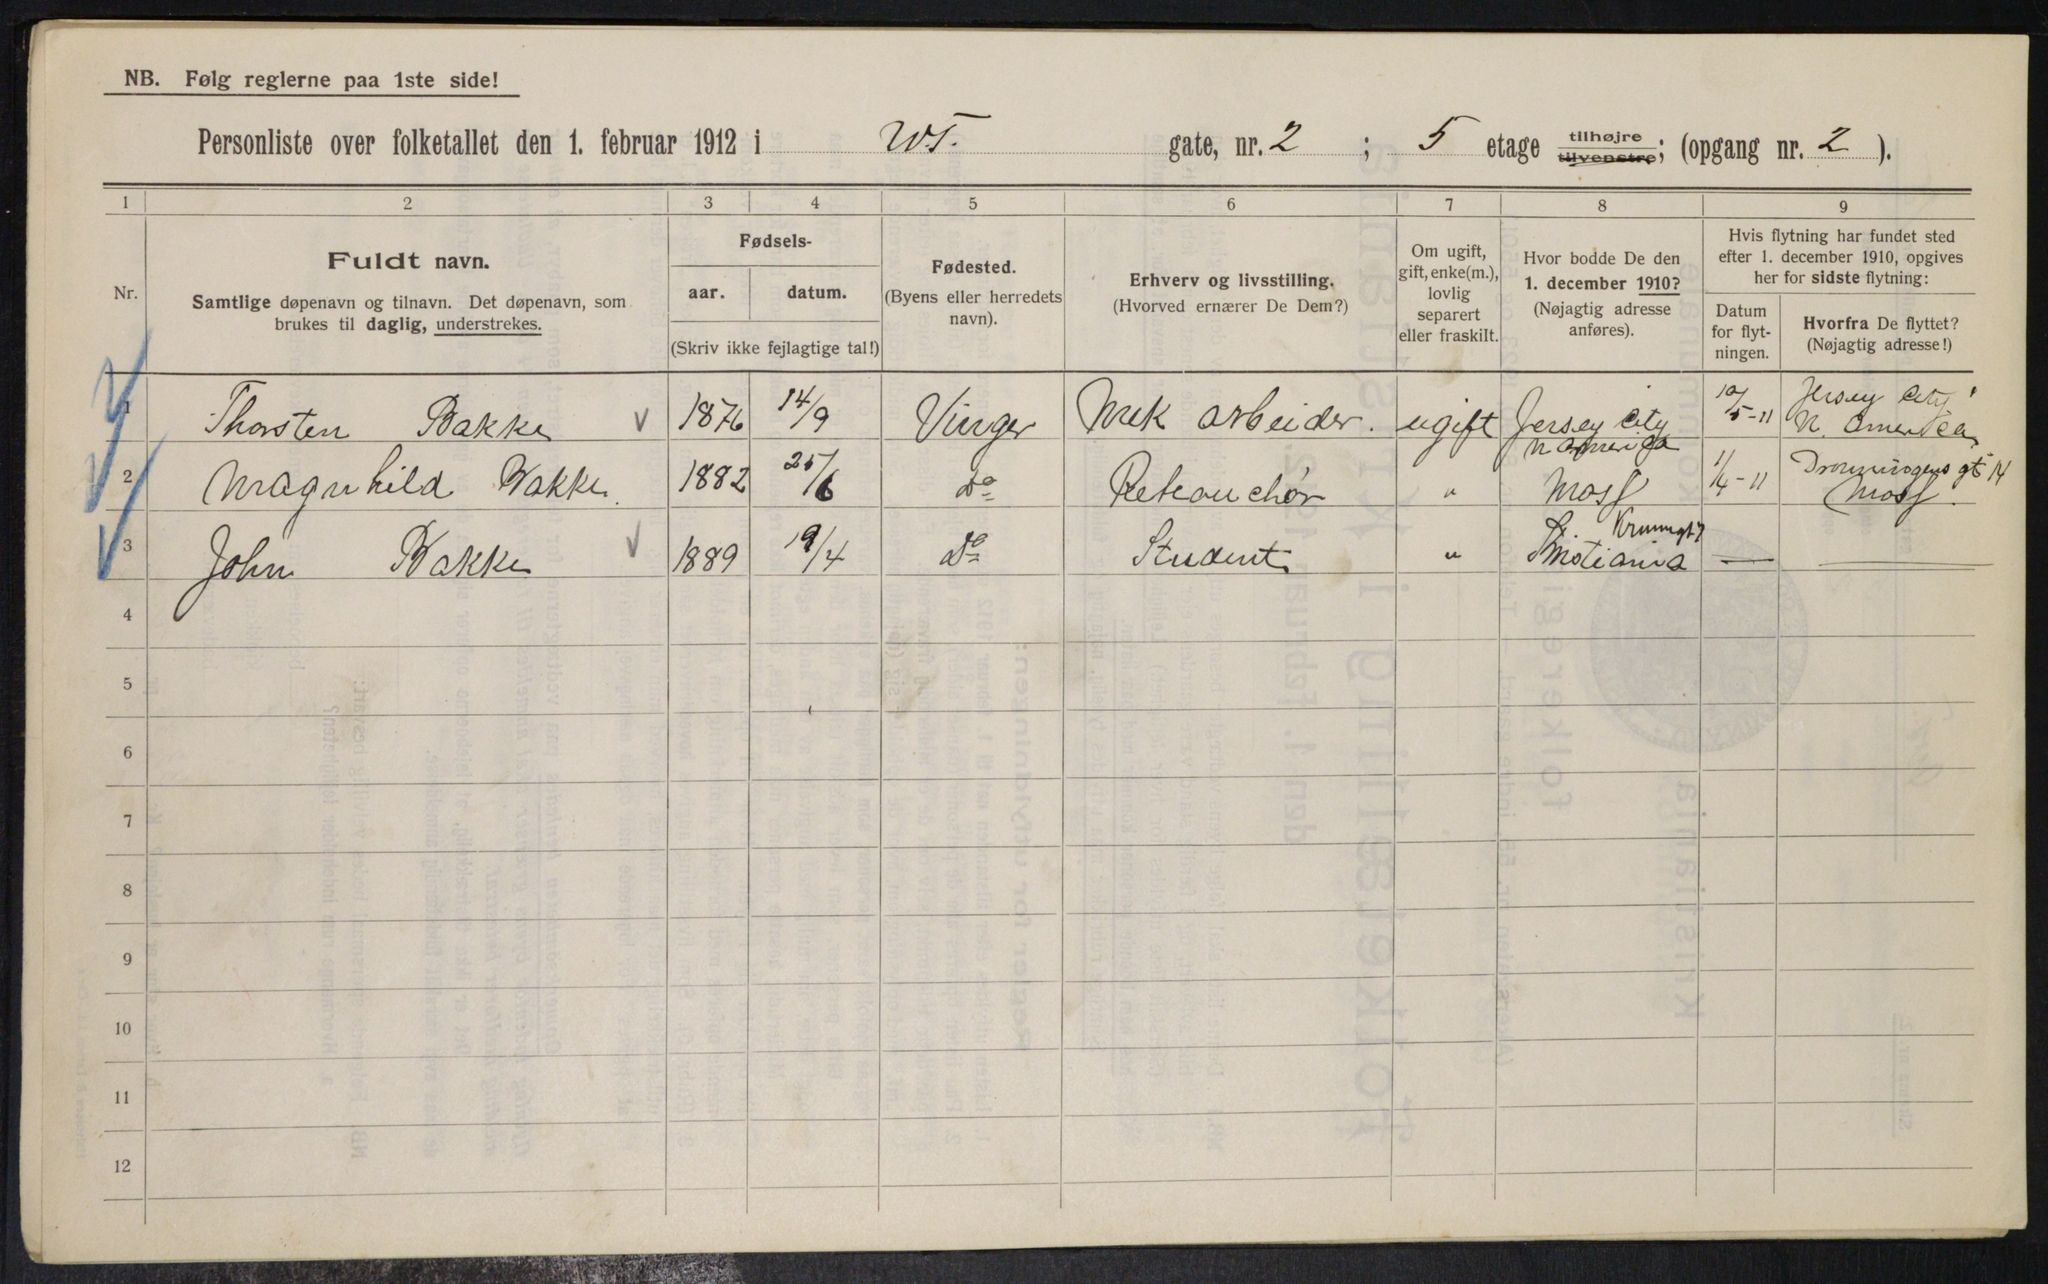 NB. Følg reglerne paa 1ste side!
Personliste over folketallet den 1. februar 1912 i WT. gate, nr. 2 ; 5 etage tilhøjre tilvenstre; (opgang nr. 2 ).
1 2 3 4 5 6 7 8 9
Nr.
Fuldt navn.
Samtlige døpenavn og tilnavn. Det døpenavn, som
brukes til daglig, understrekes.
Fødsels-
aar. datum.
(Skriv ikke fejlagtige tal!)
Fødested.
(Byens eller herredets
navn).
Erhverv og livsstilling.
(Hvorved ernærer De Dem?)
Om ugift,
gift, enke(m.),
lovlig
separert
eller fraskilt.
Hvor bodde De den
1. december 1910?
(Nøjagtig adresse
anføres).
Hvis flytning har fundet sted
efter 1. december 1910, opgives
her for sidste flytning:
Datum
for flyt-
ningen.
Hvorfra De flyttet?
(Nøjagtig adresse!)
1 Thorsten Bakke 1876 14/9 Vinger Mek arbeider. ugift Jersey City N America 10/5-11 Jersey City N. America
2 Magnhild Bakke. 1882 25/6 Do Retouchør " Moss 1/4-11 Dronningens gt 14 Moss
3 John Bakke 1889 19/4 Do Student " Kristiania — —
4
5
6
7
8
9
10
11
12